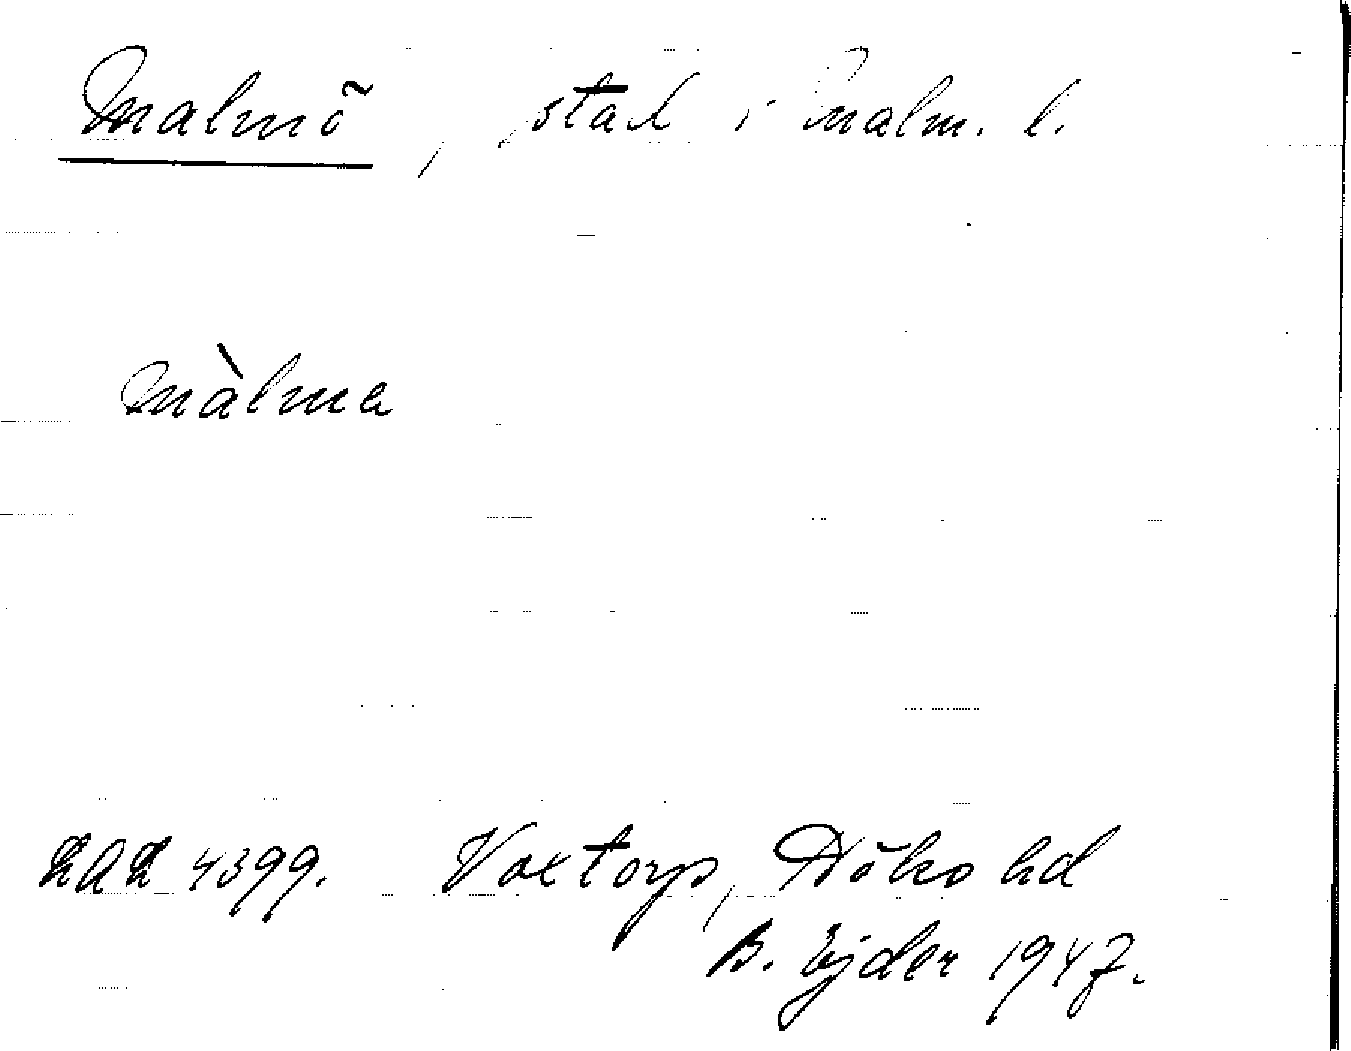 Malmö, stad i Malm. l.
màlma
LAL 4399. Voxtorp, Höks hd
B. Ejder 1947.